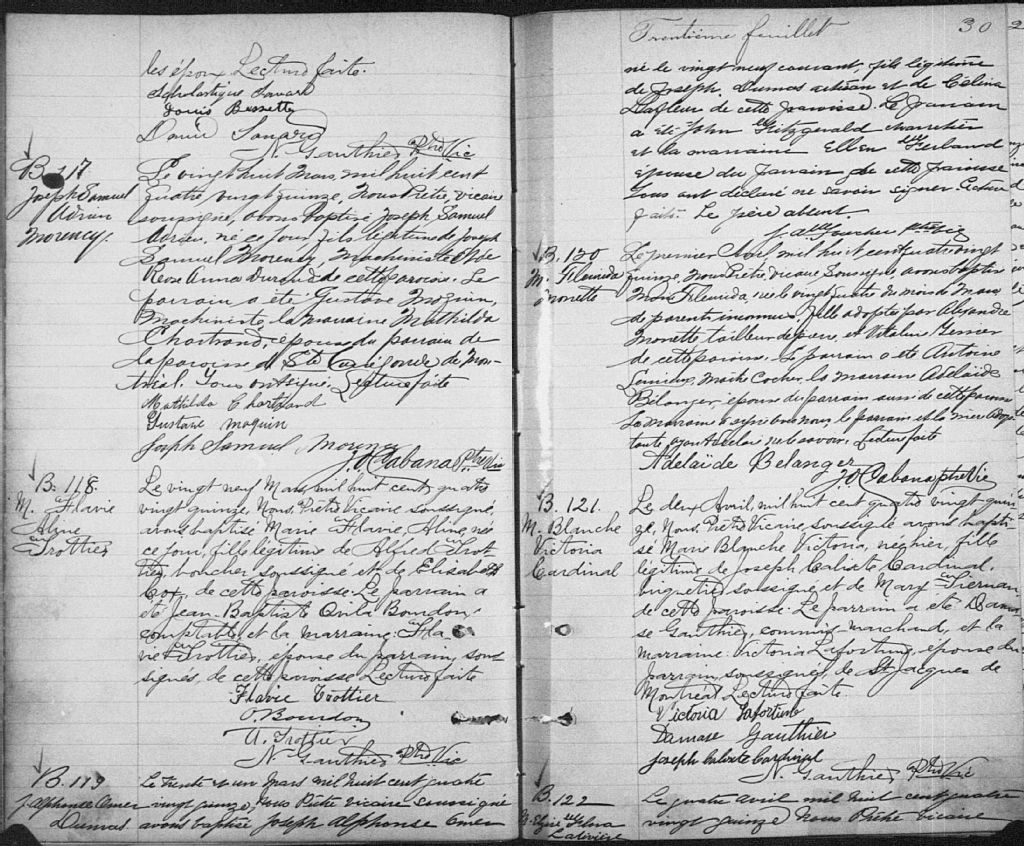 les époux Lecture faite.
Scholastique Savard
Louis Bessette
N. Gauthier Ptre Vic
B. 117
Joseph Samuel
Adrien
Morency.
Le vingt huit Mars, mil huit cent
quatre vingt quinze, Nous Prêtre, vicaire
soussigné, avons baptisé Joseph Samuel
Adrien, né ce jour, fils légitime de Joseph
Samuel Morency, machiniste et de
Rose Anna Durand de cette paroisse. Le
parrain a été Gustave Moquin,
Machiniste, la marraine Mathilda
Chartrand, épouse du parrain de
la paroisse de Ste Cunégonde de Mon-
tréal. Tous ont signé. Lecture faite
Mathilda Chartrand
Gustave moquin
Joseph Samuel Morency
J. O Cabana Ptre Vic
B. 118.
M. Flavie
Aline
Trottier
Le vingt neuf Mars, mil huit cent quatre
vingt quinze, Nous, Prêtre Vicaire soussigné,
avons baptisé Marie Flavie, Aline née
ce jour, fille légitime de Alfred Trot-
tier, boucher, soussigné et de Elisabeth
Cox, de cette paroisse. Le parrain a
été Jean-Baptiste Ovila Bourdon,
comptable, et la marraine, Fla
vie Trottier, épouse du parrain, sous-
signés, de cette paroisse Lecture faite
Flavie Trottier
O. Bourdon
A. Trottier
N. Gauthier Ptre Vic
B. 119
J. Alphonse Omer
Dumas
Le trente et un Mars mil huit cent quatre
vingt quinze, nous Prêtre vicaire soussigné
avons baptisé Joseph Alphonse Omer
Trentième feuillet
30
né le vingt neuf courant, fils légitime
de Joseph Dumas artisan et de Célina
Lafleur de cette paroisse. Le parrain
a été John Fitzgerald charretier
et la marraine Ellen Ferland
épouse du parrain de cette paroisse
tous ont déclaré ne savoir signer Lecture
faite. Le père absent.
B. 120
M. Fleurida
Monette
Le premier Avril, mil huit cent quatre vingt
quinze, Nous Prêtre Vicaire Soussigné, avons baptisé
Marie Fleurida, née le vingt quatre du mois de Mars
de parents inconnus, fille adoptée par Alexandre
Monette, tailleur de pierre, et Vitaline
de cette paroisse. Le parrain a été Antoine
Lemieux, Maître Cocher, la marraine Adélaide
Bélanger, épouse du parrain aussi de cette paroisse
La marraine a signé avec nous, le parrain et la mère adop-
tante ayant déclaré ne le savoir. Lecture faite
Adelaïde Belanger
J O Cabana ptre Vic
B. 121.
M. Blanche
Victoria
Cardinal
Le deux Avril, mil huit cent quatre vingt quin
ze, Nous, Prêtre Vicaire, soussigné avons bapti-
sé Marie Blanche Victoria, née hier, fille
légitime de Joseph Calixte Cardinal,
briquetier, soussigné et de Mary Tiernan
de cette paroisse. Le parrain a été Dama
se Gauthier, commis-marchand, et la
marraine: Victoria Lafortune, épouse du
parrain, soussignés, de St Jacques de
Montréal Lecture faite.
Victoria Lafortune
Damase Gauthier
Joseph Calixte Cardinal
N. Gauthier Ptre Vic
B. 122
Le quatre avril mil huit cent quatre
vingt quinze Nous Prêtre vicaire